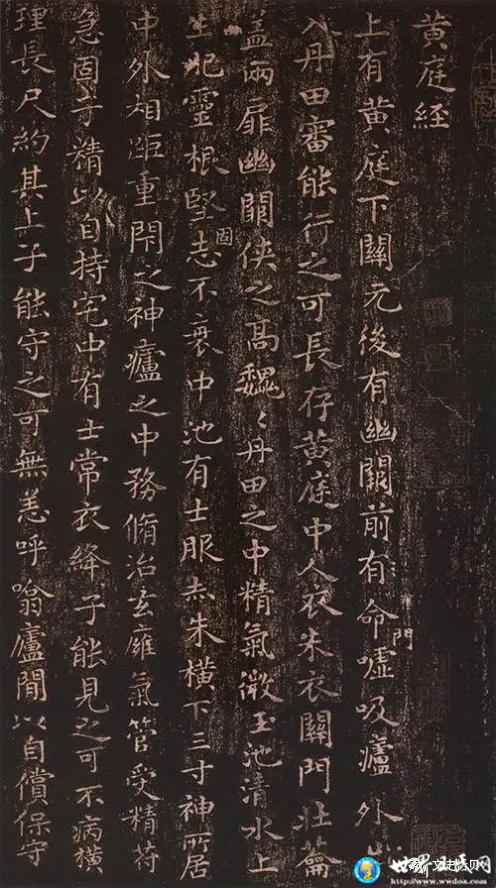 黃庭經
上有黃庭下關元後有幽闕前有命門噓吸廬外出
入丹田審能行之可長存黃庭中人衣朱衣關門壯蘥
蓋兩扉幽闕俠之高魏〻丹田之中精氣微玉池清水上
生肥靈根堅固志不衰中池有士服赤朱橫下三寸神所居
中外相距重閇之神廬之中務脩治玄廱氣管受精符
急固子精以自持宅中有士常衣絳子能見之可不病橫
理長尺約其上子能守之可無恙呼噏廬間以自償保守
世界艺术网
www.wwdoa.com